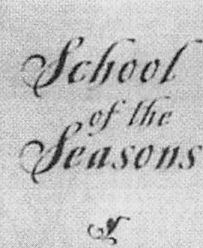 School
of the
Seasons